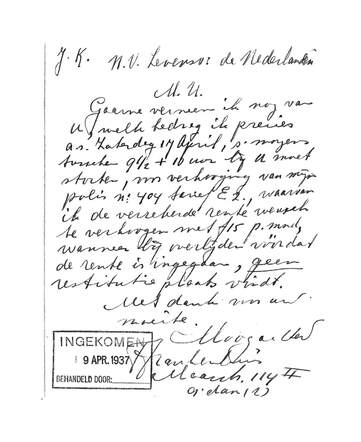 J. K. N.V. Levensv: de Nederlanden
M. H.
Gaarne verneem ik nog van
U, welk bedrag ik precies
a.s. Zaterdag 17 April, s. morgens
tusschen 9½ + 10 uur bij U moet
storten, ins verhooging van mijn
polis no: 404 serie E 2., waarvan
ik de verzekerde rente wensch
te verhoogen met f15 p. mnd,
wanneer bij overlijden vóórdat
de rente is ingegaan, geen
restitutie plaats vindt.
Met dank voor uw
moeite.
INGEKOMEN
9 APR. 1937
BEHANDELD DOOR:
114 II
A'dam (Z)